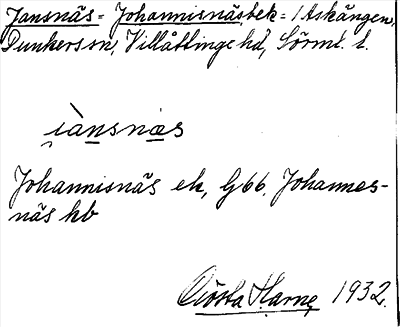 Jansnäs = Johannisnäs, bek = 1 Askängen,
Dunkers sn, Villåttinge hd, Sörml. l.
iànsnæs
Johannisnäs ek, G66. Johannes-
näs hb
Gösta Harne 1932.